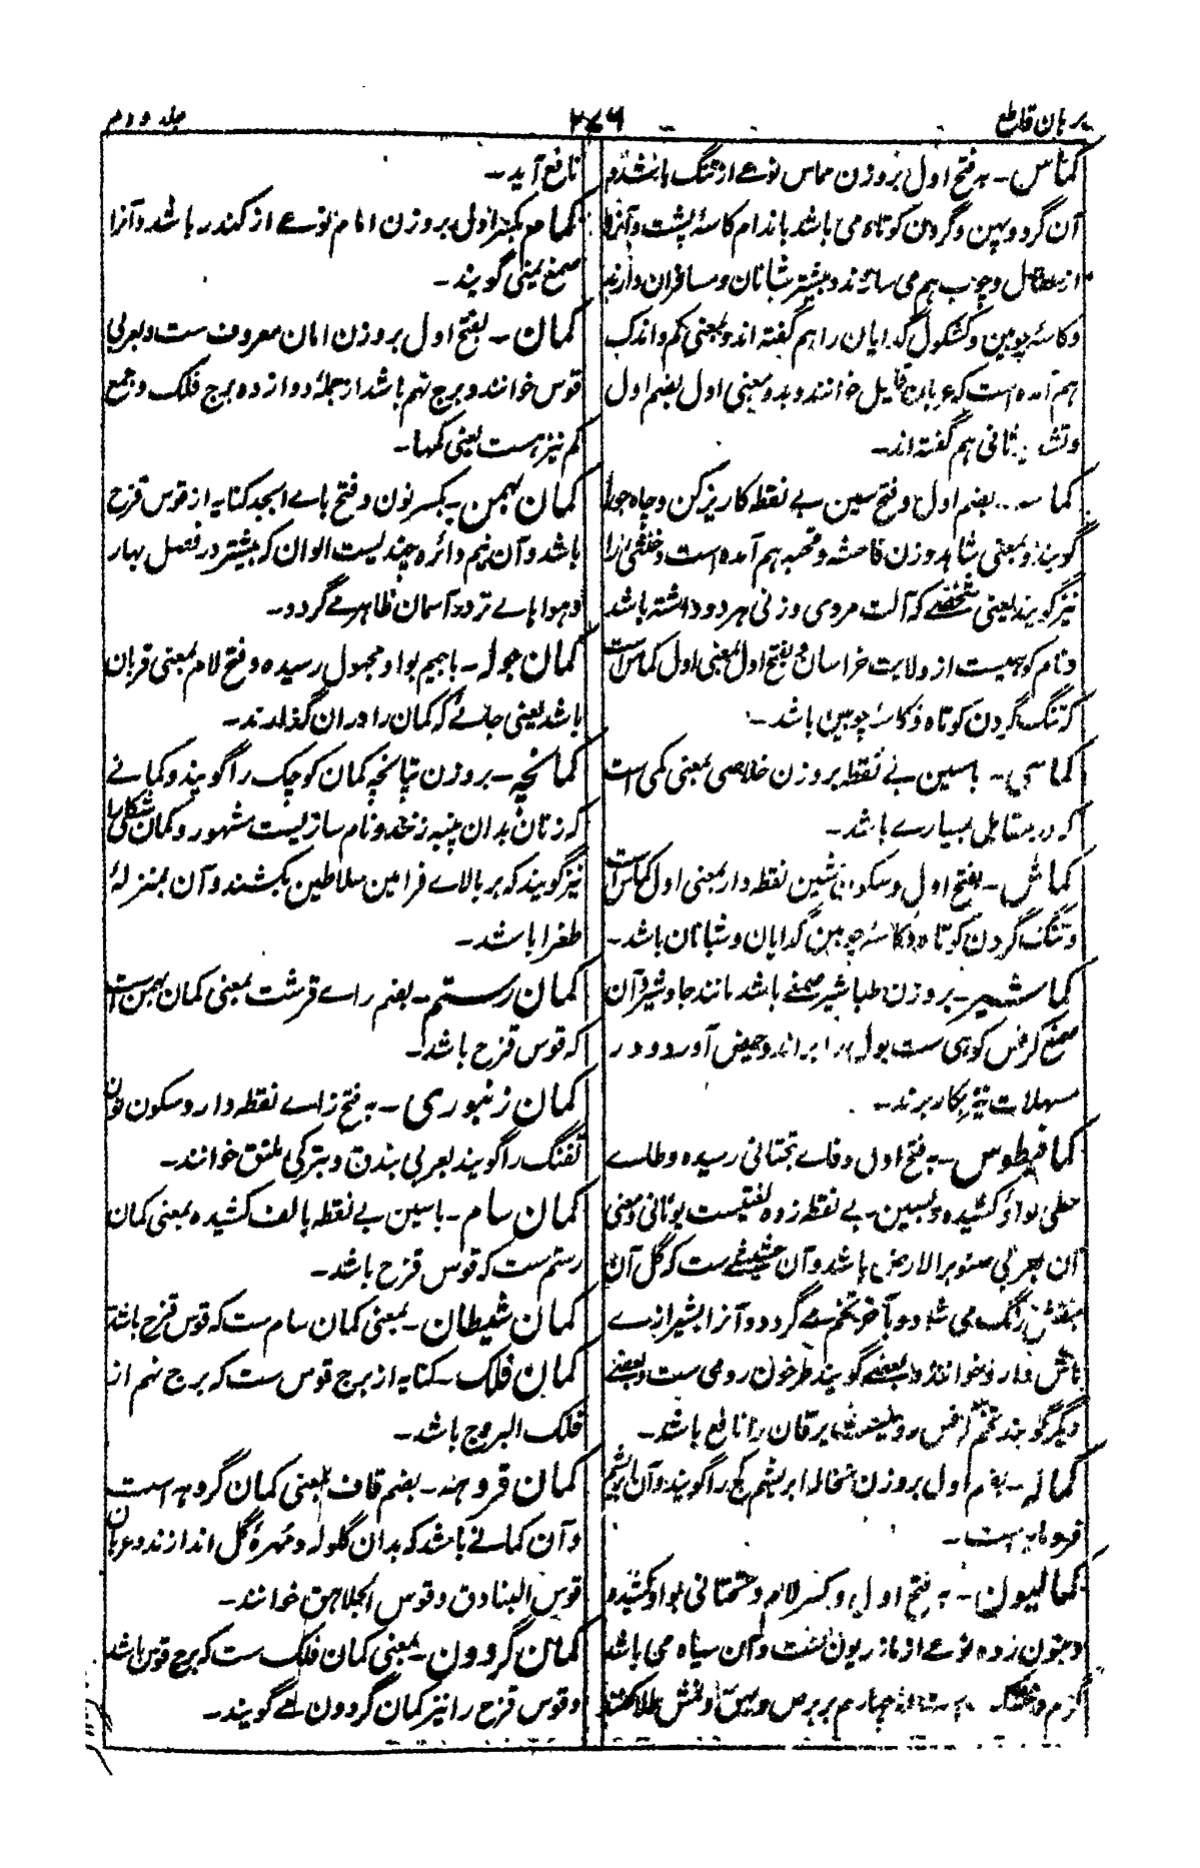 برہان قاطع
۲۷۶
جلد دوم
کماس - بہ فتح اول بروزن مماس نوعے از تنگ باشد و
آن گرد و پہن و گردن کوتاہ می باشد باندام کاسۂ پشت و آنرا
از سفال و چوب ہم می سازند و بیشتر شبانان و مسافران دارند
و کاسۂ چوبین و کشکول گدایان را ہم گفتہ اند و بمعنی کم و اندک
ہم آمدہ است کہ عربان قلیل خوانند و بدو معنی اول بضم اول
و تشدید ثانی ہم گفتہ اند -
بضم اول و فتح سین بے نقطہ کاریزکن و چاہ جو را
گویند و بمعنی شاہد و زن فاحشہ و قحبہ ہم آمدہ است و خنثی را
نیز گویند یعنی شخصے کہ آلت مردی و زنی ہر دو داشتہ باشد
و نام کوہیست از ولایت خراسان و بفتح اول بمعنی اول کماس است
کہ تنگ گردن کوتاہ و کاسۂ چوبین باشد -
کماسی - باسین بے نقطہ بروزن خلاصی بمعنی کمی است
کہ در مقابل بسیارے باشد -
کماش - بفتح اول و سکون شین نقطہ دار بمعنی اول کماس است
و تنگ گردن کوتاہ و کاسۂ چوبین گدایان و شبانان باشد -
کماشیر - بروزن طباشیر صمغے باشد مانند جاوشیر و آن
صمغ کرفس کوہی ست بول را براند و حیض آورد و در
مسہلات نیز بکار برند -
کمافیطوس - بہ فتح اول و فاے بتحتانی رسیدہ و طاے
حطی بواو کشیدہ و بسین بے نقطہ زدہ لغتیست یونانی و معنی
آن بعربی صنوبر الارض باشد و آن حشیشے ست کہ گل آن
بنفش رنگ می شود و بآخر تخم مے گردد و آنرا بشیرازے
ماش دارو خوانند و بعضے گویند طرخون رومی ست و بعضے
دیگر گویند تخم کرفس رومیست یرقان را نافع باشد -
کمالہ - بضم اول بروزن نخالہ ابریشم کج را گویند و آن ابریشم
فرومایہ است -
کمالیون - بہ فتح اول و کسر لام و تحتانی بواو کشیدہ
و بنون زدہ نوعے از مازریون است و آن سیاہ می باشد
گرم و خشک است در چہارم بر برص و بہق و نمش طلا کنند
نافع آید -
کمام - بکسر اول بروزن امام نوعے از کندر باشد و آنرا
صمغ یمنی گویند -
کمان - بفتح اول بروزن امان معروف ست و بعربی
قوس خوانند و برج نہم باشد از جملۂ دوازدہ برج فلک و جمع
کم نیز ہست یعنی کمہا -
کمان بہمن - بکسر نون و فتح باے ابجد کنایہ از قوس قزح
باشد و آن نیم دائرہ چندیست الوان کہ بیشتر در فصل بہار
و ہواہاے تر در آسمان ظاہر مے گردد -
کمان جولہ - باجیم بواو مجہول رسیدہ و فتح لام بمعنی قربان
باشد یعنی جائے کہ کمان را در آن گذارند -
کمانچہ - بروزن تپانچہ کمان کوچک را گویند و کمانے
کہ زنان بدان پنبہ زنند و نام سازیست مشہور و کمان شکلی را
نیز گویند کہ بر بالاے فرامین سلاطین بکشند و آن بمنزلۂ
طغرا باشد -
کمان رستم - بضم راے قرشت بمعنی کمان بہمن است
کہ قوس قزح باشد -
کمان زنبوری - بہ فتح زاے نقطہ دار و سکون نون
تفنگ را گویند بعربی بندق و بترکی ملتق خوانند -
کمان سام - باسین بے نقطہ بالف کشیدہ بمعنی کمان
رستم ست کہ قوس قزح باشد -
کمان شیطان - بمعنی کمان سام ست کہ قوس قزح باشد
کمان فلک - کنایہ از برج قوس ست کہ برج نہم از
فلک البروج باشد -
کمان قروہہ - بضم قاف بمعنی کمان گروہہ است
و آن کمانے باشد کہ بدان گلولہ و مہرۂ گل اندازند و عربان
قوس البنادق و قوس الجلاہق خوانند -
کمان گردون - بمعنی کمان فلک ست کہ برج قوس باشد
و قوس قزح را نیز کمان گردون مے گویند -